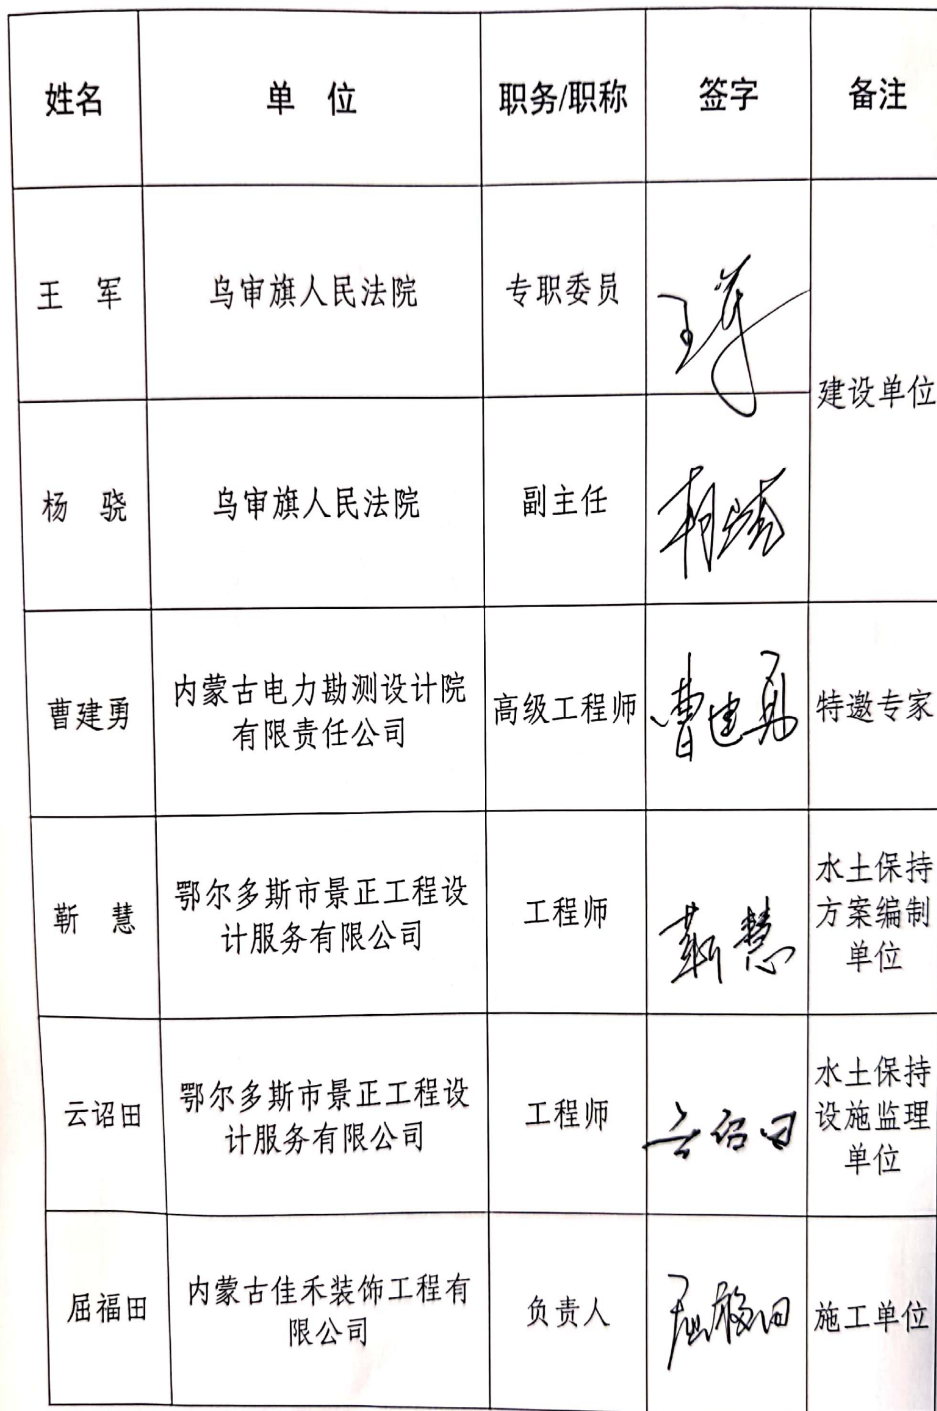 姓名 单 位 职务/职称 签字 备注
王 军 乌审旗人民法院 专职委员 王军 建设单位
杨 骁 乌审旗人民法院 副主任
曹建勇 内蒙古电力勘测设计院
有限责任公司 高级工程师 曹建勇 特邀专家
靳 慧 鄂尔多斯市景正工程设
计服务有限公司 工程师 靳慧 水土保持
方案编制
单位
云诏田 鄂尔多斯市景正工程设
计服务有限公司 工程师 云诏田 水土保持
设施监理
单位
屈福田 内蒙古佳禾装饰工程有
限公司 负责人 屈福田 施工单位